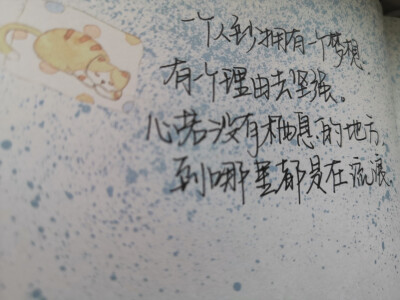 一个人至少拥有一个梦想.
有一个理由去坚强。
心若没有栖息的地方
到哪里都是在流浪.